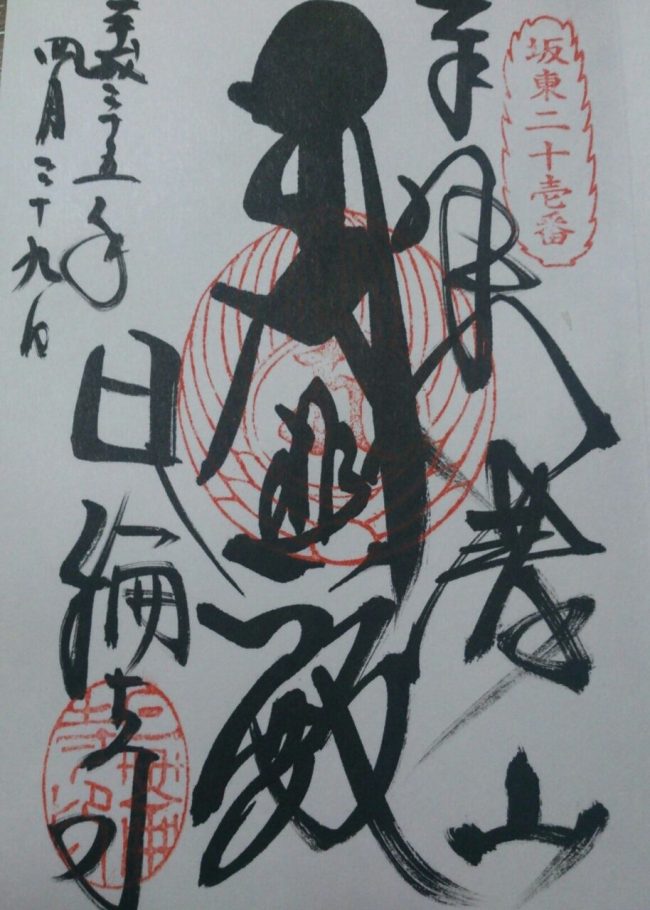 坂東二十壱番
奉拝
八溝山
大悲殿
日輪寺
平成二十五年
四月二十九日